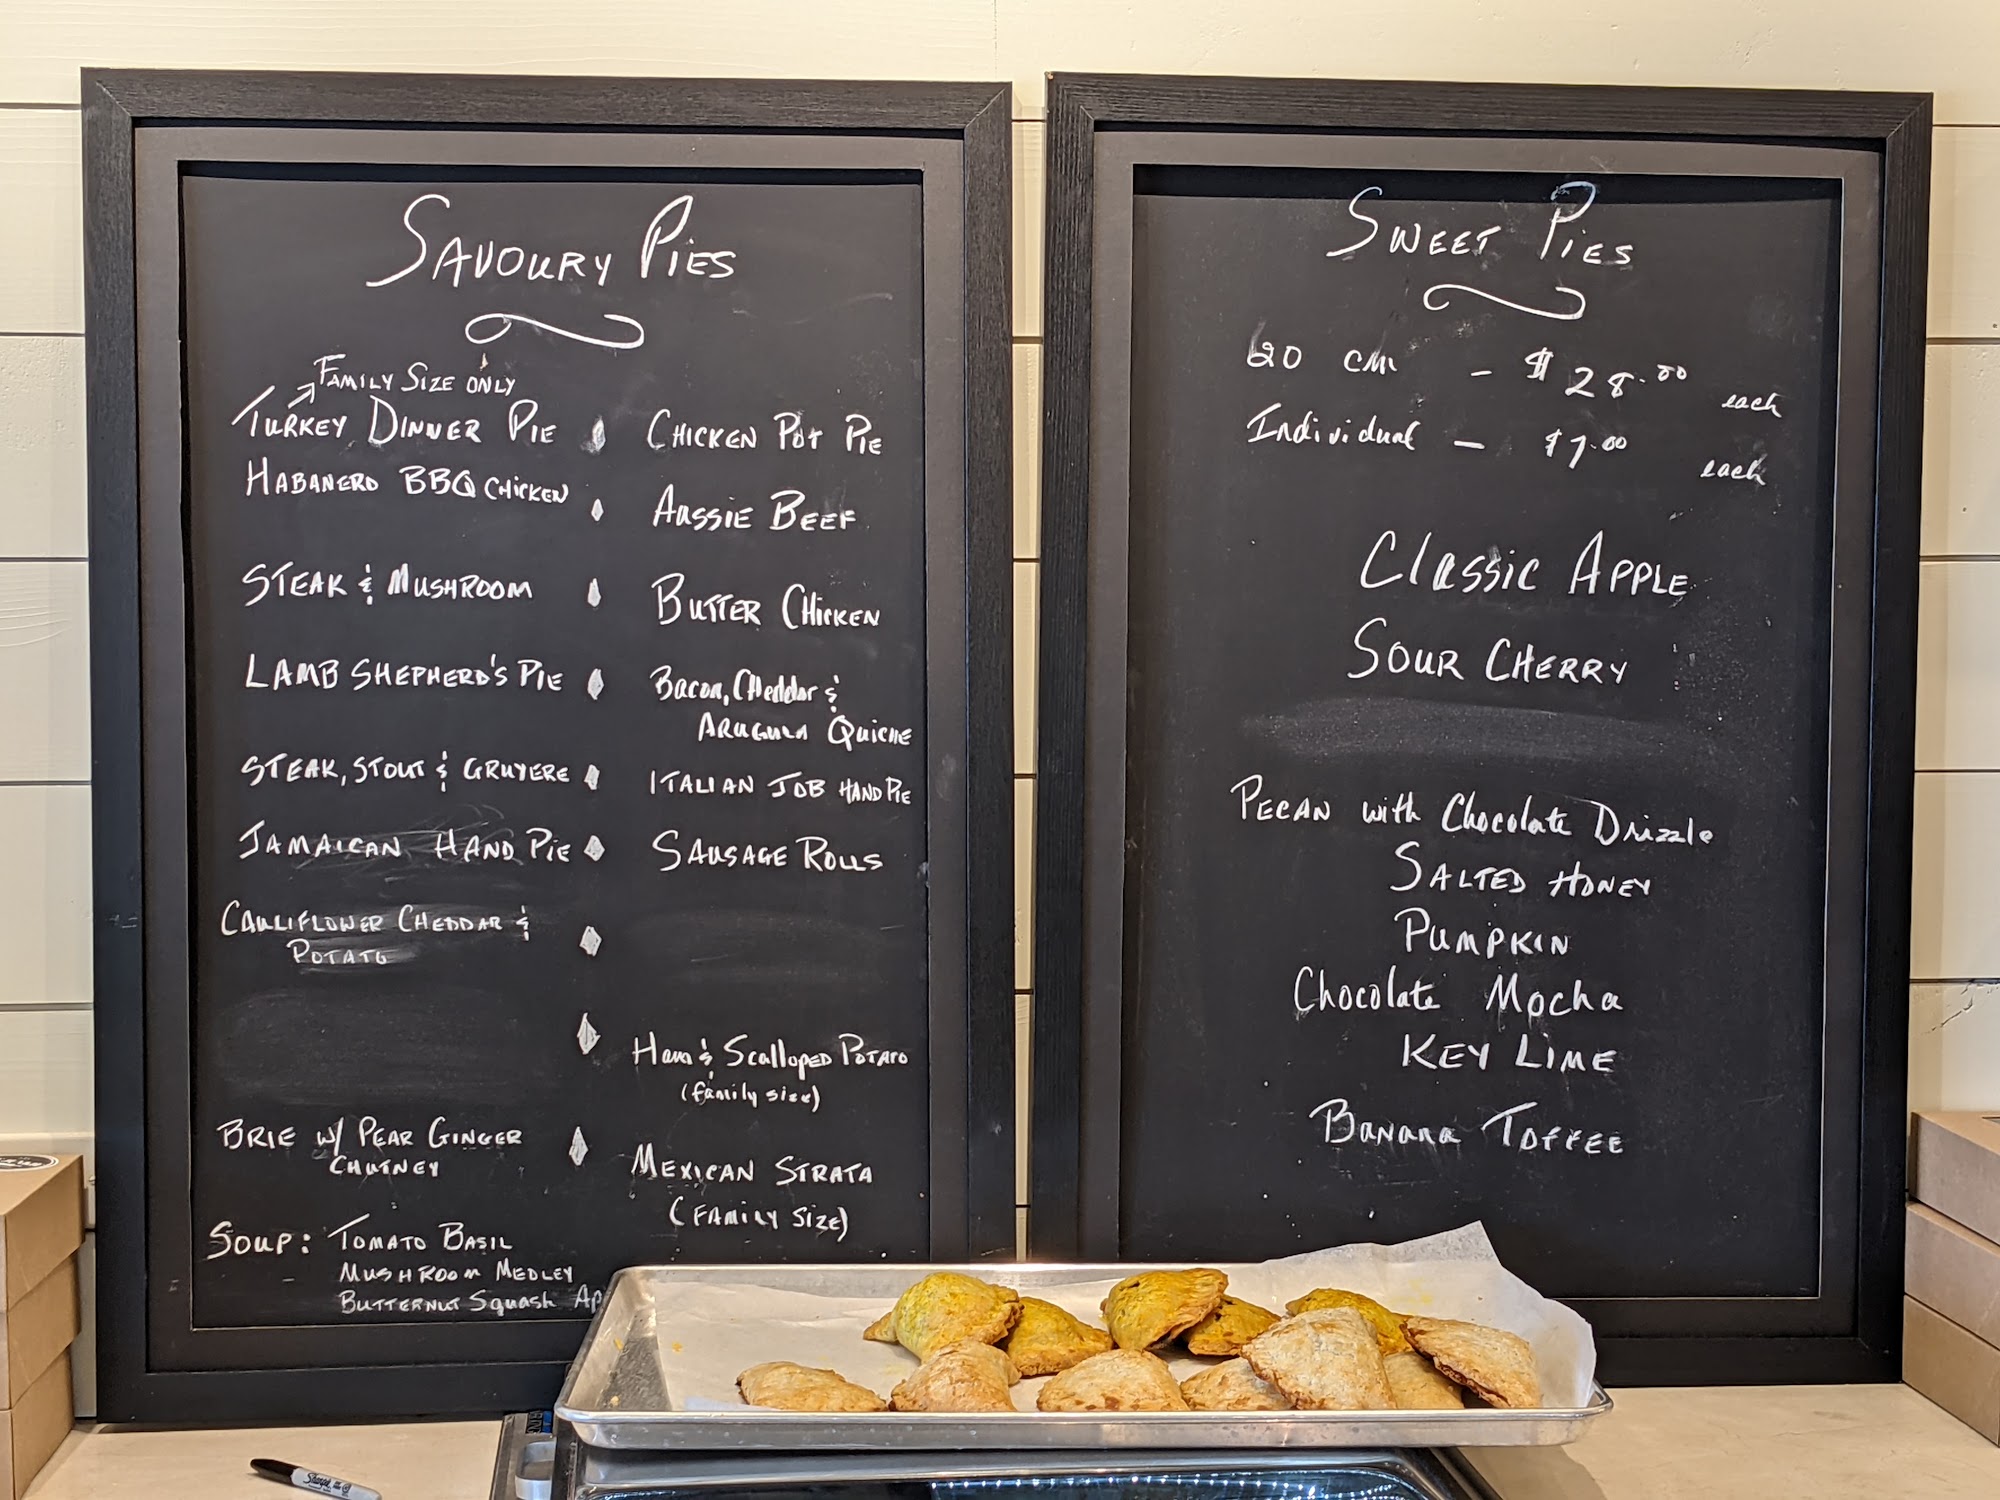 SAVOURY PIES
FAMILY SIZE ONLY
TURKEY DINNER PIE
HABANERO BBQ CHICKEN
STEAK & MUSHROOM
LAMB SHEPHERD'S PIE
STEAK, STOUT & GRUYERE
JAMAICAN HAND PIE
CAULIFLOWER CHEDDAR &
POTATO
BRIE W/ PEAR GINGER
CHUTNEY
SOUP: TOMATO BASIL
MUSHROOM MEDLEY
BUTTERNUT Squash Ap
CHICKEN POT PIE
AUSSIE BEEF
BUTTER CHICKEN
Bacon, CHeddar &
ARUGULA QUICHE
ITALIAN JOB HAND PIE
SAUSAGE ROLLS
Ham & Scalloped POTATO
(family size)
MEXICAN STRATA
(FAMILY SIZE)
SWEET PIES
20 cm - $28.00 each
Individual - $7.00 each
Classic APPLE
SOUR CHERRY
PECAN with Chocolate Drizzle
SALTED HONEY
PUMPKIN
Chocolate Mocha
KEY LIME
BANANA TOFFEE
Sharpie